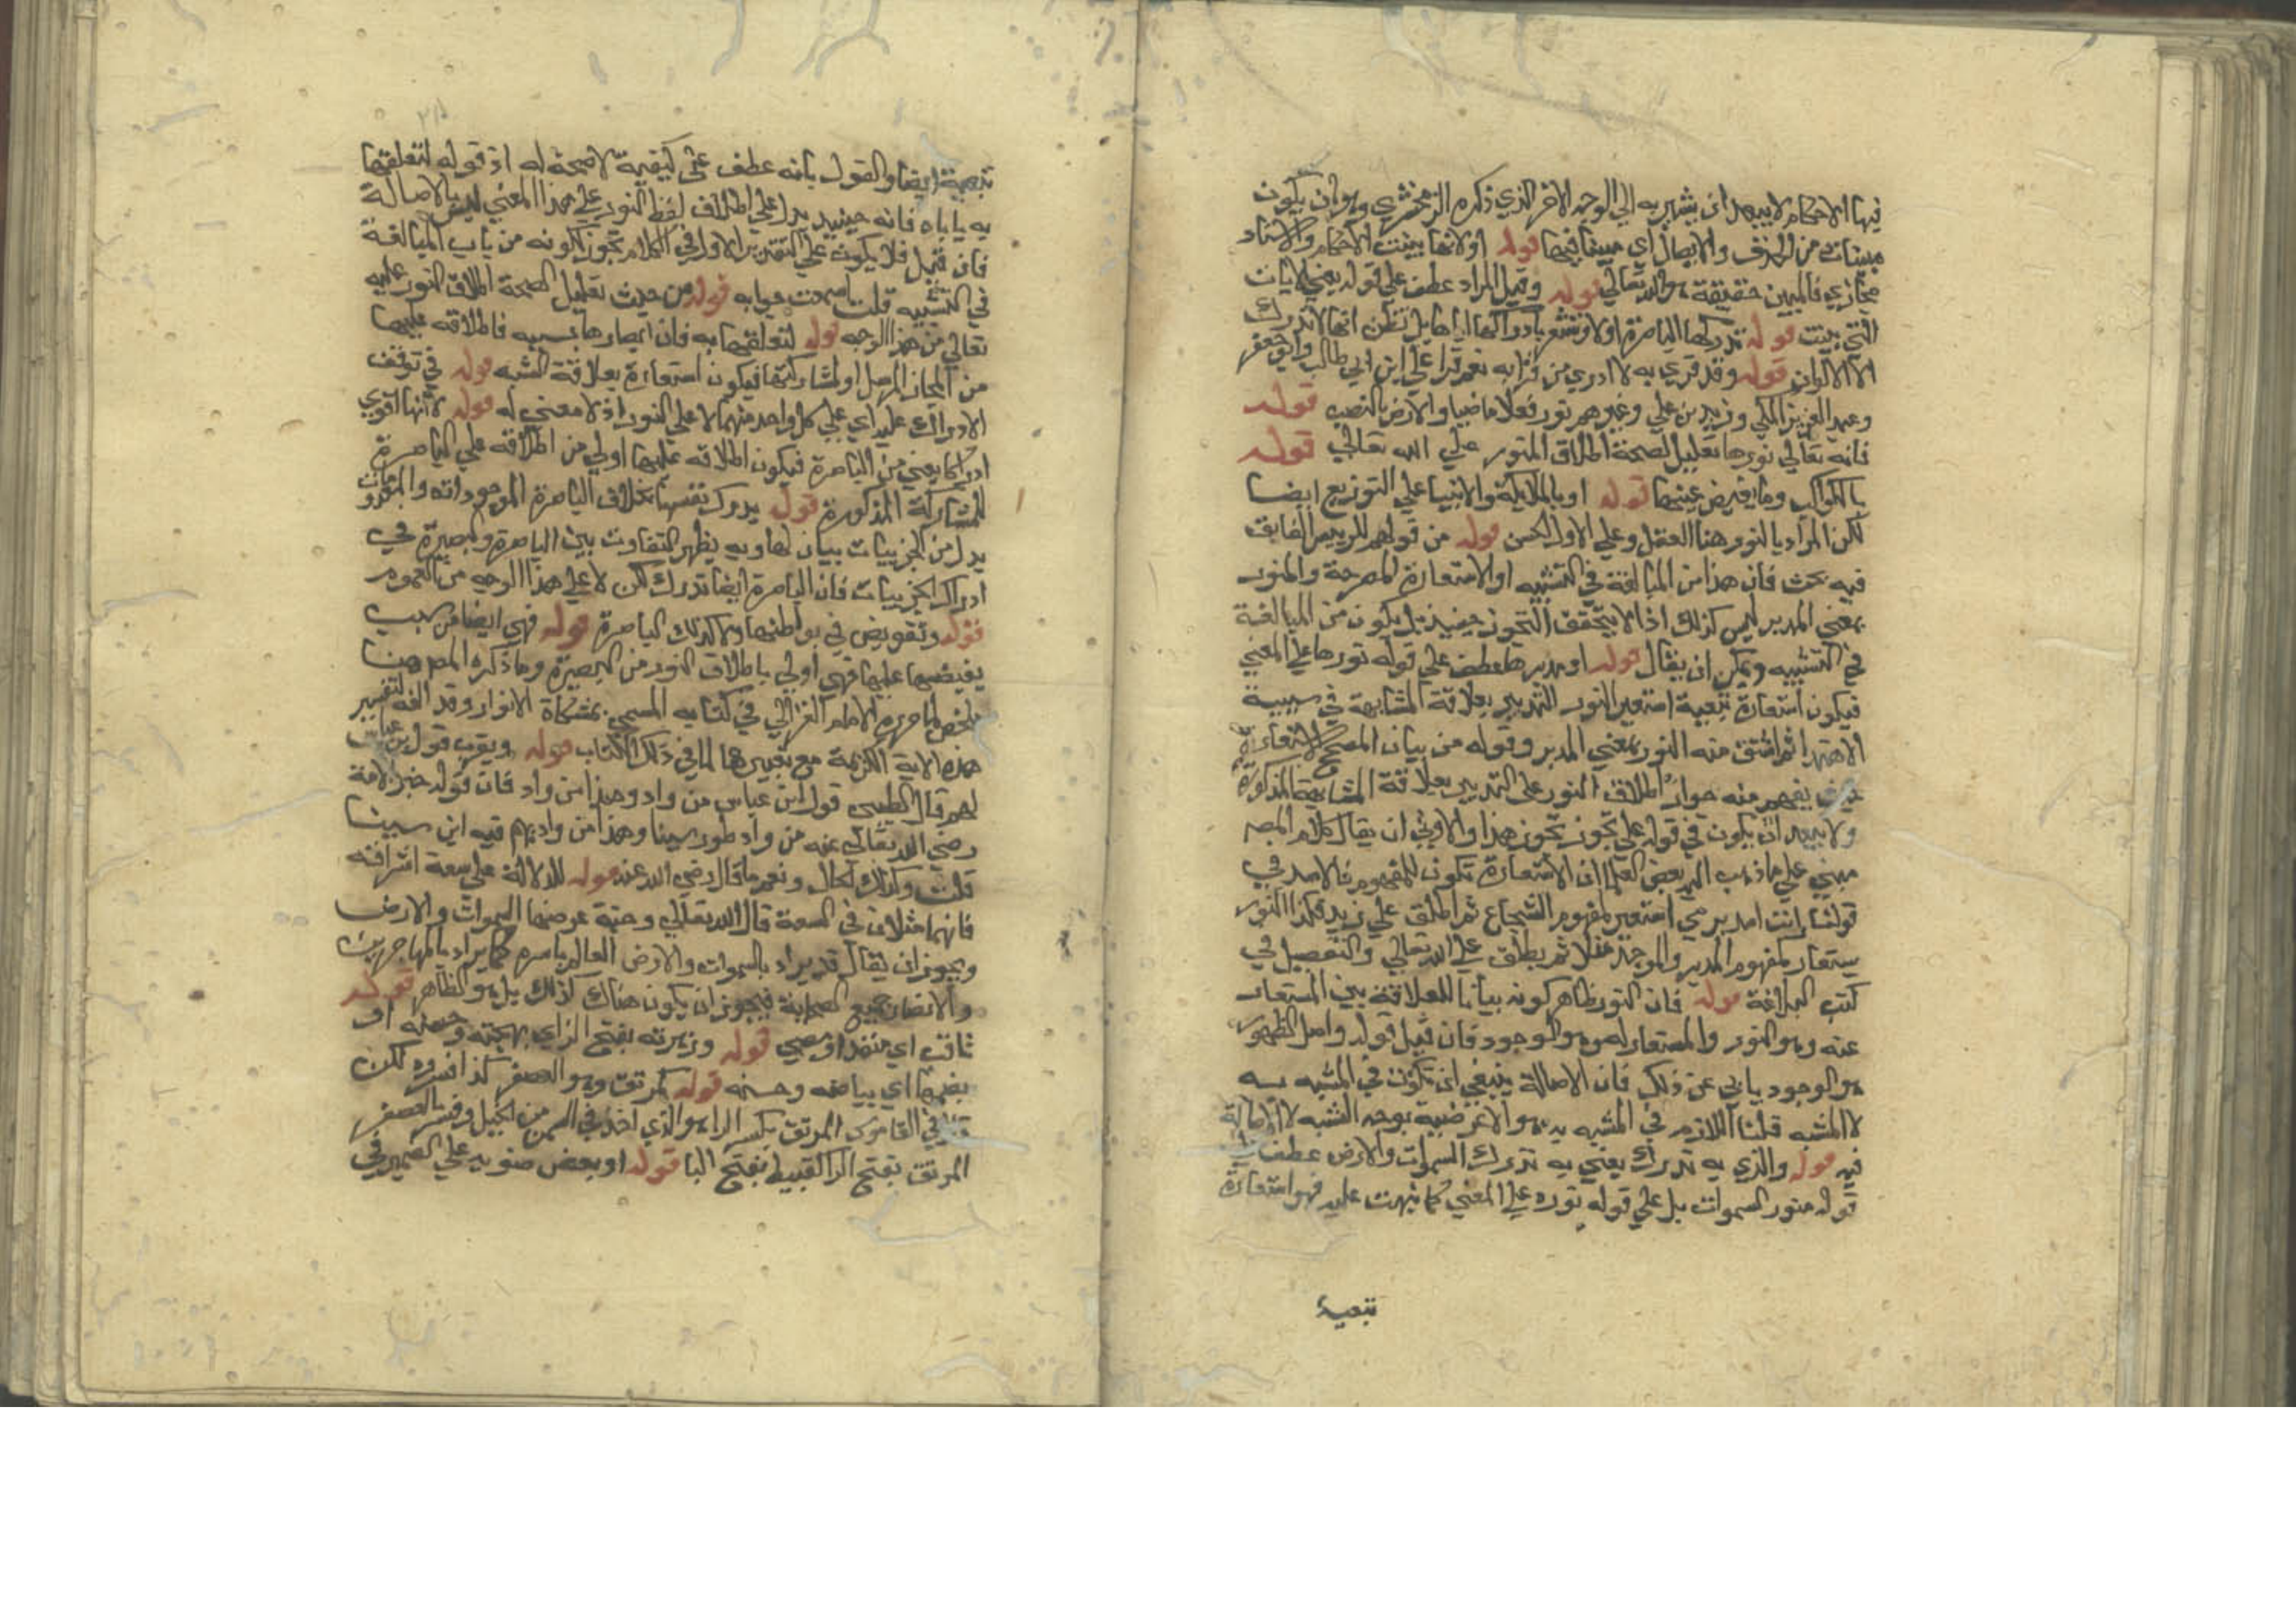 فيها الاحكام لا يبعد ان يشير به الي الوجه الاخر الذي ذكره الزمخشري وهو ان يكون
مبينات من الحذف والايصال اي مبينا فيها قوله او لانها بينت الاحكام والاسناد
مجازي فالمبين حقيقة هو الله تعالي قوله وقيل المراد عطف علي قوله يعني الايات
التي بينت قوله تدركها الباصرة اولا وتشعر بادراكها اياها بل تظن انها لا تدرك
الا الالوان قوله وقد قري به لا ادري من قرا به نعم قرا علي ابن ابي طالب وابو جعفر
وعبد العزيز المكي وزيد بن علي وغيرهم نور فعلا ماضيا والارض بالنصب قوله
فانه تعالي نورها تعليل لصحة اطلاق المنور علي الله تعالي قوله
بالكواكب وما يفيض عنها قوله او بالملايكة والانبيا علي التوزيع ايضا
لكن المراد بالنور هنا العقل وعلي الاول الحسن قوله من قولهم للرييس الفايق
فيه بحث فان هذا من المبالغة في التشبيه او الاستعارة المصرحة والمنور
بمعني المدبر ليس كذلك اذا لا يتحقق التجوز حينيذ بل يكون من المبالغة
في التشبيه ويمكن ان يقال قوله او مدبرها عطف علي قوله نورها علي المعني
فيكون استعارة تبعية استعير النور للتدبير بعلاقة المشابهة في سببية
الاهتدا ثم اشتق منه النور بمعني المدبر وقوله من بيان المصحح للاستعارة
يفهم منه جواز اطلاق النور علي التدبير بعلاقة المشابهة المذكورة
ولا يبعد ان يكون في قوله علي تجوز تجوز هذا والاولي ان يقال كلام المصـ
مبني علي ما ذهب اليه بعض العلما ان الاستعارة تكون للمفهوم فالاسد في
قولنا رايت اسد يرمي استعير لمفهوم الشجاع ثم اطلق علي زيد فكذا النور
يستعار لمفهوم المدبر والموجد مثلا ثم يطلق علي الله تعالي والتفصيل في
كتب البلاغة قوله فان النور ظاهر كونه بيانا للعلاقة بين المستعار
عنه وهو النور والمستعار له وهو الوجود فان قيل قوله واصل الظهور
هو الوجود يابي عن ذلك فان الاصالة ينبغي ان يكون في المشبه به
لا المشبه قلنا اللازم في المشبه به هو الاعرضية بوجه الشبه لا الاصالة
فيه قوله والذي به تدرك يعني به تدرك السموات والارض عطف علي
قوله منور السموات بل علي قوله نوره علي المعني كما نبهت عليه فهو استعارة
تبعية
تبعية ايضا والقول بانه عطف علي كيفية لا صحة له اذ قوله لتعلقها
به ياباه فانه حينيذ يدل علي اطلاق لفظ النور علي هذا المعني ليس بالاصالة
فان قيل فلا يكون علي التقدير الاول في الكلام تجوز لكونه من باب المبالغة
في التشبيه قلت ما سمعت جوابه قوله من حيث تعليل لصحة اطلاق النور عليه
تعالي من هذا الوجه قوله لتعلقها به فان ابصارها بسببه فاطلاقه عليها
من المجاز المرسل او لمشاركتها فيكون استعارة بعلاقة الشبه قوله في توقف
الادراك عليه اي علي كل واحد منهما لا علي النور اذ لا معني له قوله لانها اقوي
ادراكا يعني من الباصرة فيكون اطلاقه عليها اولي من اطلاقه علي الباصرة
للمشاركة المذكورة قوله يدرك نفسها بخلاف الباصرة الموجودات والمعدومات
بدل من الجزييات بيان لها وبه يظهر التفاوت بين الباصرة والبصيرة في
ادراك الجزييات فان الباصرة ايضا تدرك لكن لا علي هذا الوجه من العموم
قوله وتغويض في بواطنها ولا كذلك الباصرة قوله فهي ايضا من سبب
يفيضها عليها فهي اولي باطلاق النور من البصيرة وما ذكره المصـ هنا
ملخص لما صرح الامام الغزالي في كتابه المسمي بمشكاة الانوار وقد الفه لتفسير
هذه الاية الكريمة مع تغيير ما لما في ذلك الكتاب قوله ويقرب قول ابن عباس
لهم قال الطيبي قول ابن عباس من واد وهذا من واد فان قوله خبر الامة
رضي الله تعالي عنه من واد طور سينا وهذا من واد يهيم فيه ابن سينا
قلت وكذلك الحال ونعم ما قال رضي الله عنه قوله للدلالة علي سعة اشراقه
فانهما مثلان في السعة قال الله تعالي وجنة عرضها السموات والارض
ويجوز ان يقال قد يراد بالسموات والارض العالم باسره كما يراد بالمهاجرين
والانصار جميع الصحابة فيجوز ان يكون هناك كذلك بل هو الظاهر قوله
ثاقب اي منقد او مضي قوله وزهرته بفتح الزاي بهجته وحسنه او
بضمها اي بياضه وحسنه قوله كمرتق وهو العصفر كذا فسروه لكن
في القاموس المرتق بكسر الرا هو الذي اخذ في السمن من الخيل وفسر العصفر
المرتق بفتح الرا القبيط بفتح البا قوله او بعض ضوءه علي الضمير في